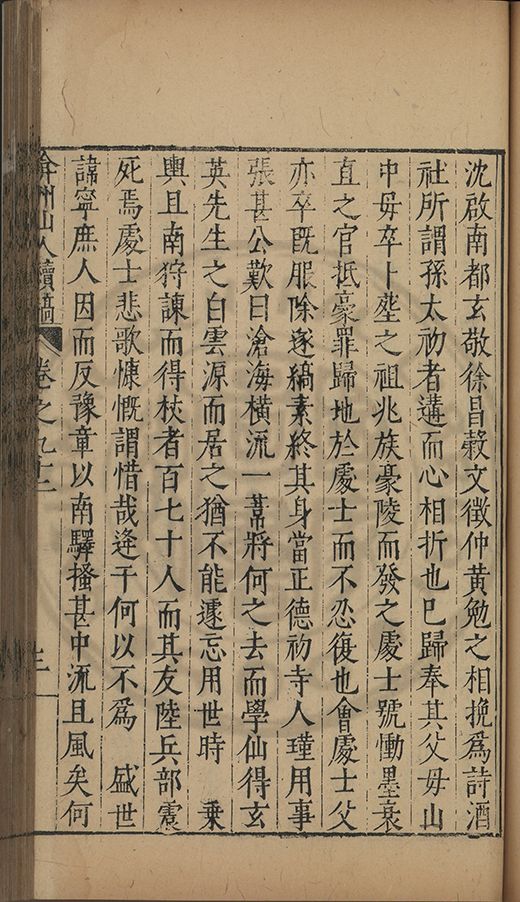 沈啟南都玄敬徐昌穀文徵仲黃勉之相挽爲詩酒
社所謂孫太初者遘而心相折也已歸奉其父母山
中母卒卜塟之祖兆族豪陵而發之處士號慟墨衰
直之官抵豪罪歸地於處士而不忍復也會處士父
亦卒既服除遂縞素終其身當正德初寺人瑾用事
張甚公歎曰滄海橫流一葦將何之去而學仙得玄
英先生之白雲源而居之猶不能遽忘用世時 乗
輿且南狩諫而得杖者百七十人而其友陸兵部震
死焉處士悲歌慷慨謂惜哉逄干何以不爲 盛世
諱寧庶人因而反豫章以南驛搔甚中流且風矣何
弇州山人續稿 卷之九十二 三